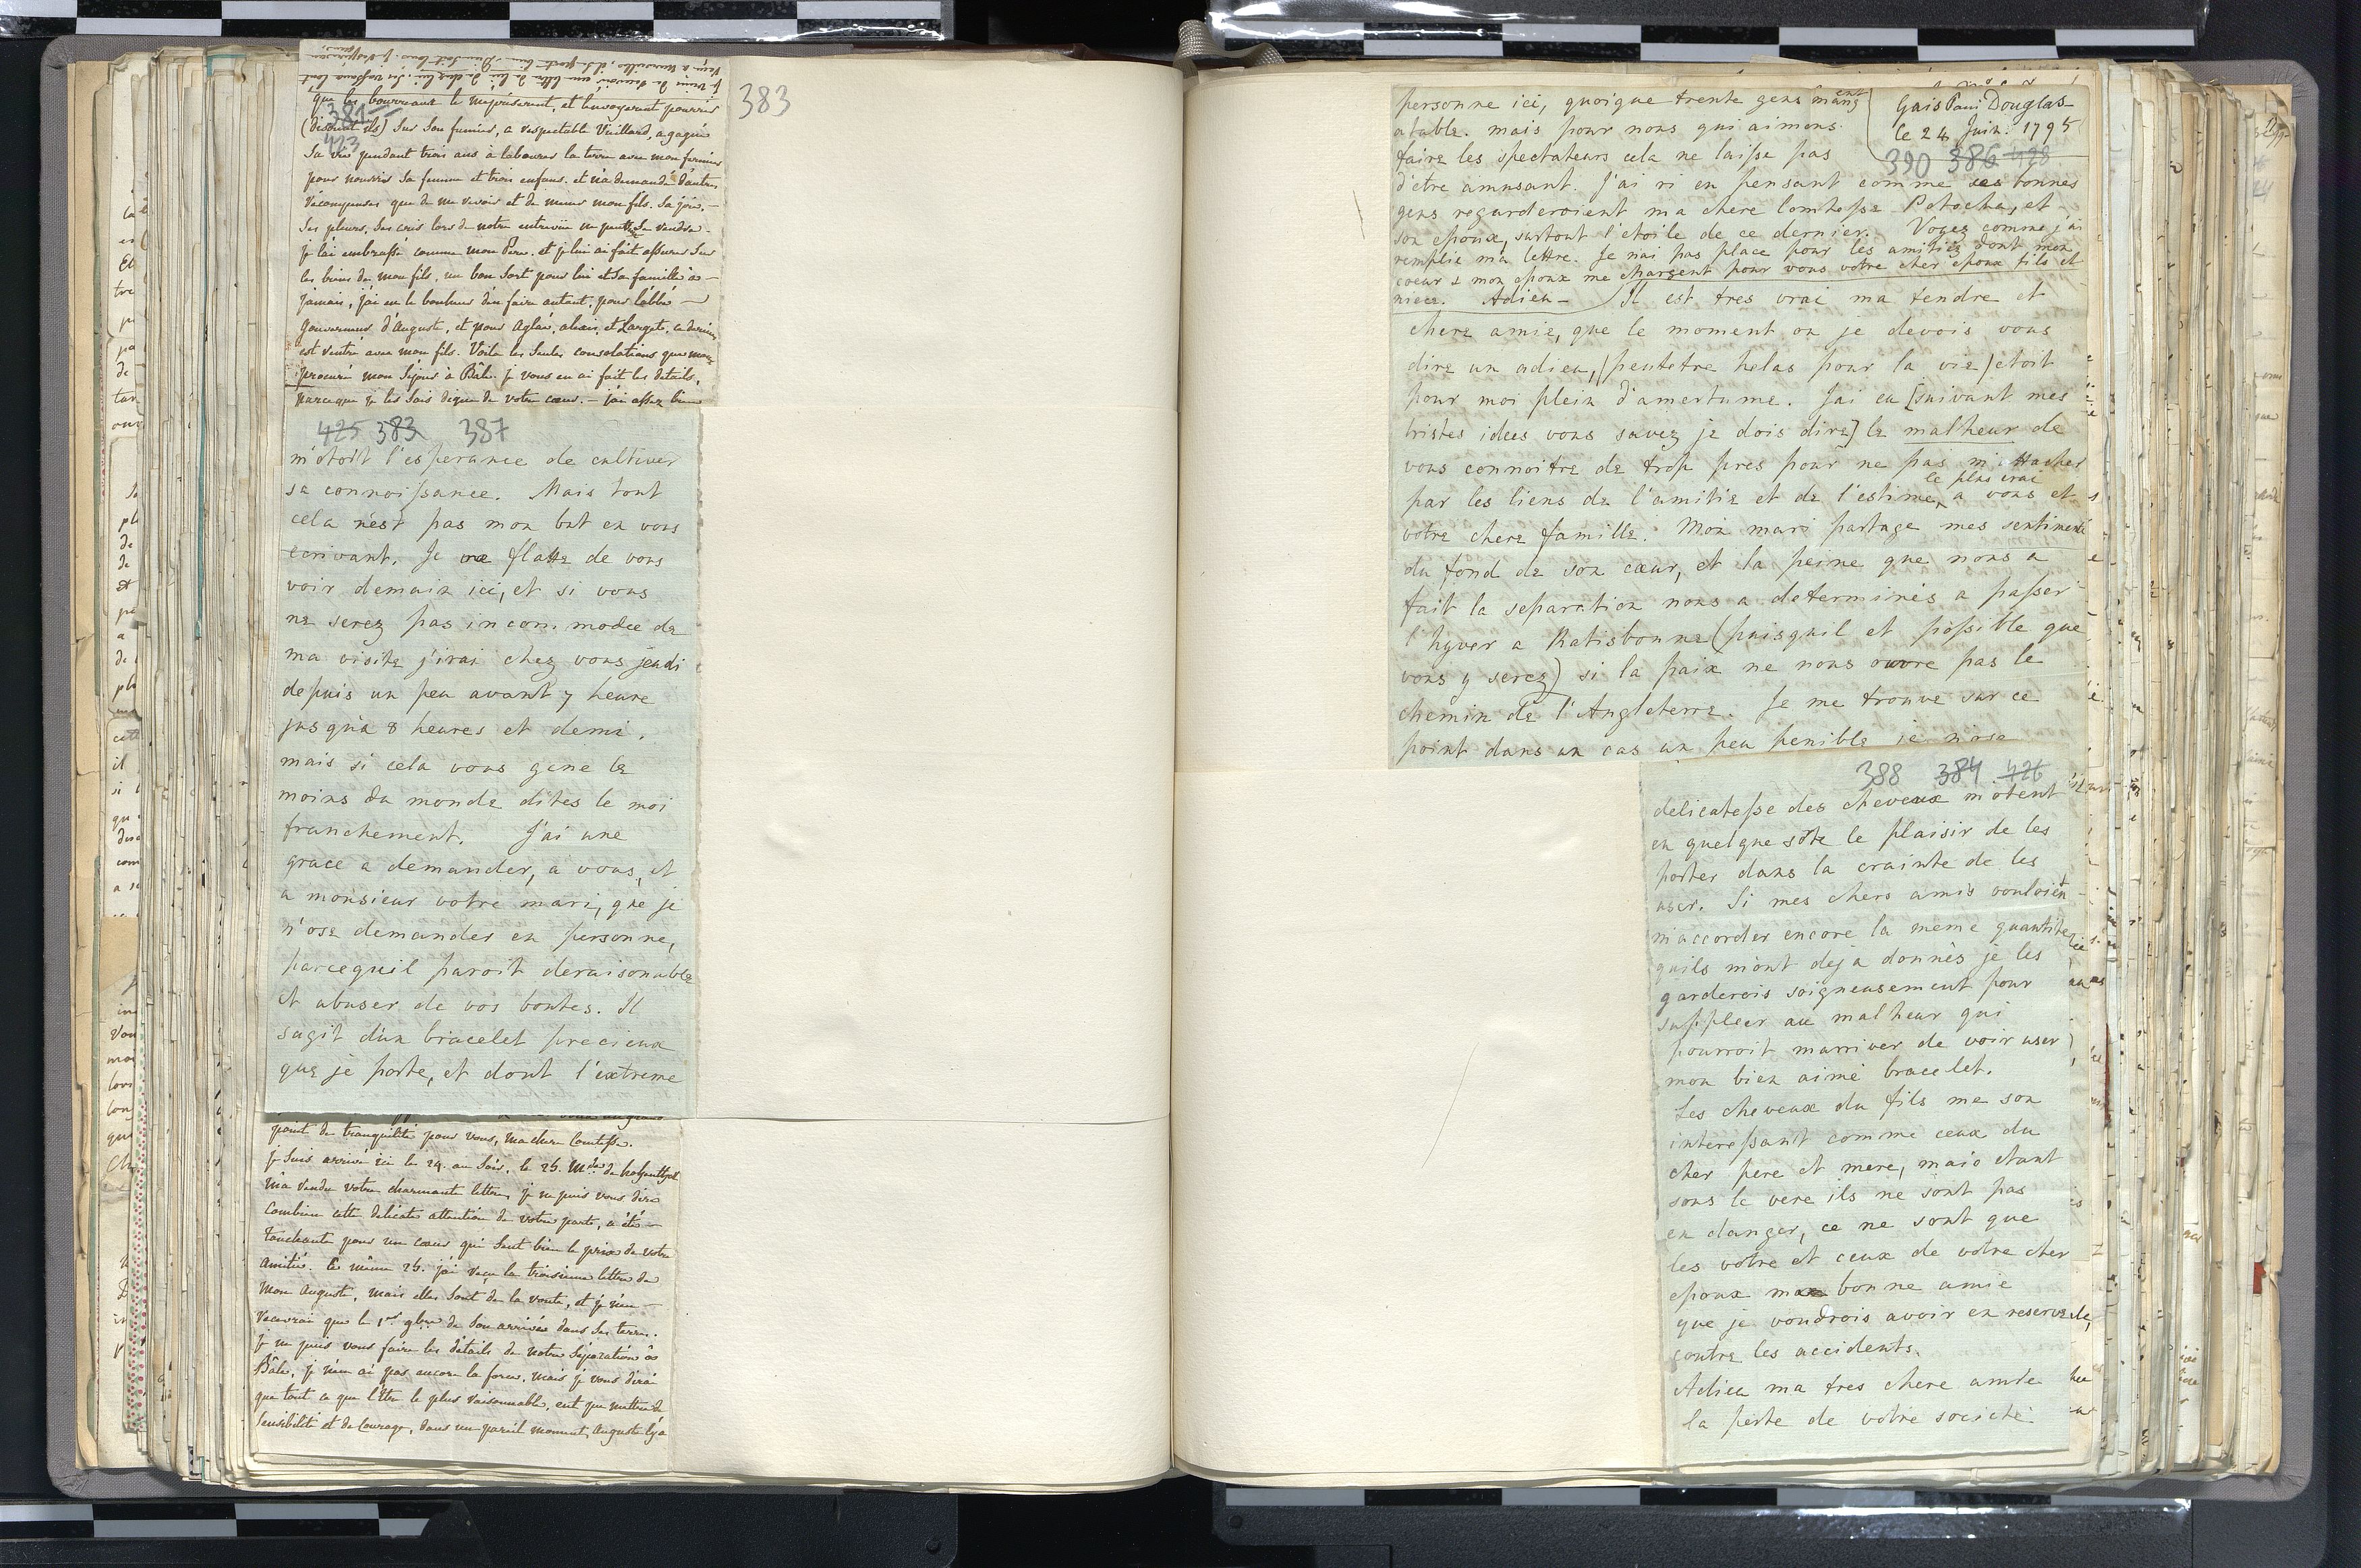 383
que les bourreaux le mepriserent, et l'envoyerent pourrir
381
423
(disoient ils) sur son fumier, ce respectable Vieillard, a gagné
sa vie pendant trois ans à labourer la terre avec mon fermier
pour nourrir sa femme et trois enfans. et n'a demandé d'autre
récompense que de me revoir et de mener mon fils. Sa joie, —
ses pleurs, ses cris lors de notre entrevüe ne peut se rendre. —
je l'ai embrassé comme mon Pere. et je lui ai fait assurer sur
les biens de mon fils, un bon sort pour lui et sa famille à —
jamais, j'ai eu le bonheur d'en faire autant, pour l'abbé —
Gouverneur d'Auguste, et pour Aglaé, alexis, et Larget, ce dernier
est rentré avec mon fils. Voila les seules consolations que m'ai
procuré mon séjour à Bâle. je vous en ai fait les details,
parceque je les sais digne de votre cœur. — j'ai assez bien
425 383 387
m'etoit l'esperance de cultiver
sa connoissance. Mais tout
cela n'est pas mon but en vous
ecrivant. Je me flatte de vous
voir demain ici, et si vous
ne serez pas incommodee de
ma visite j'irai chez vous jeudi
depuis un peu avant 7 heure
jusqu'a 8 heures et demi.
mais si cela vous gene le
moins du monde dites le moi
franchement. J'ai une
grace a demander, a vous, et
a monsieur votre mari, que je
n'ose demander en personne,
parcequil paroit deraisonable
et abuser de vos bontes. Il
sagit d'un bracelet precieux
que je porte, et dont l'extreme
point de tranquilité pour vous, ma chere Comtesse.
je suis arrivé ici le 24. au soir, le 25. Mde de
m'a rendu votre charmante lettre, je ne puis vous dire
Combien cette délicate attention de votre part, a été —
touchante pour un cœur qui sent bien le prix de votre
amitié. Ce même 25. j'ai reçu la troisieme lettre de
mon Auguste, mais elles sont de la route, et je n'en —
recevrai que le 1er 9bre de son arrivée dans ses terres.
je ne puis vous faire les détails de notre séparation à
Bâle, je n'en ai pas encore la force. mais je vous dirai
que tout ce que l'Etre le plus raisonnable, eut pu mettre de
sensibilité et de Courage, dans un pareil moment, Auguste l'y a
personne ici, quoique trente gens mangent
a table. mais pour nous qui aimons
faire les spectateurs cela ne laisse pas
Douglas
le 24 Juin. 1795
390 386 428
d'etre amusant. J'ai ri en pensant comme ses bonnes
gens regarderoient ma chere Comtesse Potocka, et
son epoux, surtout l'etoile de ce dernier. Voyez comme j'ai
remplie ma lettre. Je n'ai pas place pour les amitiés dont mon
coeur & mon epoux me chargent pour vous votre cher epoux fils et
niece. Adieu — Il est tres vrai ma tendre et
chere amie, que le moment ou je devois vous
dire un adieu, (peutetre helas pour la vie) etoit
pour moi plein d'amertume. J'ai eu [suivant mes
tristes idees vous savez je dois dire] le malheur de
vous connoitre de trop pres pour ne pas m'attacher
le plus vrai
par les liens de l'amitie et de l'estime, a vous et
votre chere famille. Mon mari partage mes sentiments
du fond de son cœur, et la peine que nous a
fait la separation nous a determinés a passer
l'hyver a Ratisbonne (puisquil et possible que
vous y serez) si la paix ne nous ouvre pas le
chemin de l'Angleterre. Je me trouve sur ce
point dans un cas un peu penible je n'ose
388 384 426
delicatesse des cheveux m'otent
en quelque sorte le plaisir de les
porter dans la crainte de les
user. Si mes chers amis vouloient
m'accorder encore la meme quantité
quils m'ont deja donnés je les
garderois soigneusement pour
suppleer au malheur qui
pourroit m'arriver de voir user
mon bien aimé bracelet.
Les cheveux du fils me son
interessant comme ceux du
cher pere et mere, mais etant
sous le vere ils ne sont pas
en danger, ce ne sont que
les votre et ceux de votre cher
epoux ma bonne amie
que je voudrois avoir en reserve
contre les accidents.
Adieu ma tres chere amie
la perte de votre societé